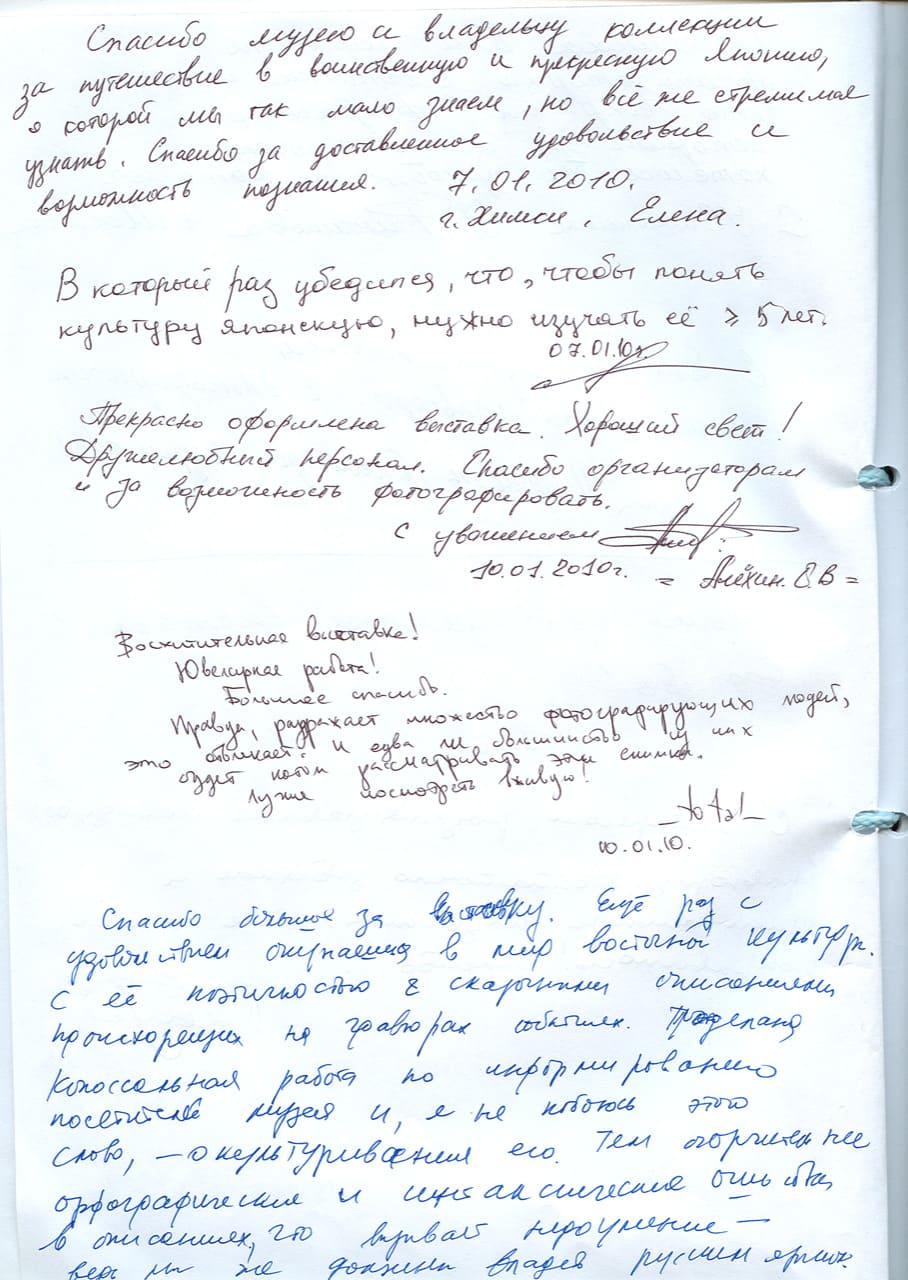 Спасибо музею и владельцу коллекции
за путешествие в воинственную и прекрасную Японию,
о которой мы так мало знаем, но всё же стремимся
узнать. Спасибо за доставленное удовольствие и
возможность познания. 7.01.2010.
г. Химки, Елена.
В который раз убедился, что, чтобы понять
культуру японскую, нужно изучать её ≥ 5 лет.
07.01.10г.
Прекрасно оформлена выставка. Хороший свет!
Дружелюбный персонал. Спасибо организаторам
и за возможность фотографировать.
С уважением
10.01.2010г. = Алёхин. С.В =
Восхитительная выставка!
Ювелирная работа!
Большое спасибо.
Правда, раздражает множество фотографирующих людей,
это отвлекает. И едва ли большинство из них
будет потом рассматривать эти снимки.
Лучше посмотреть вживую!
10.01.10.
Спасибо большое за выставку. Ещё раз с
удовольствием окунаешься в мир восточной культуры.
С её поэтичностью и сказочными описаниями
происходящих на гравюрах событиях. Проделана
колоссальная работа по информированию
посетителей музея и, я не побоюсь этого
слова, – окультуривания его. Тем огорчительнее
орфографические и синтаксические ошибки
в описаниях, что вызывает недоумение –
ведь мы же должны владеть русским языком.